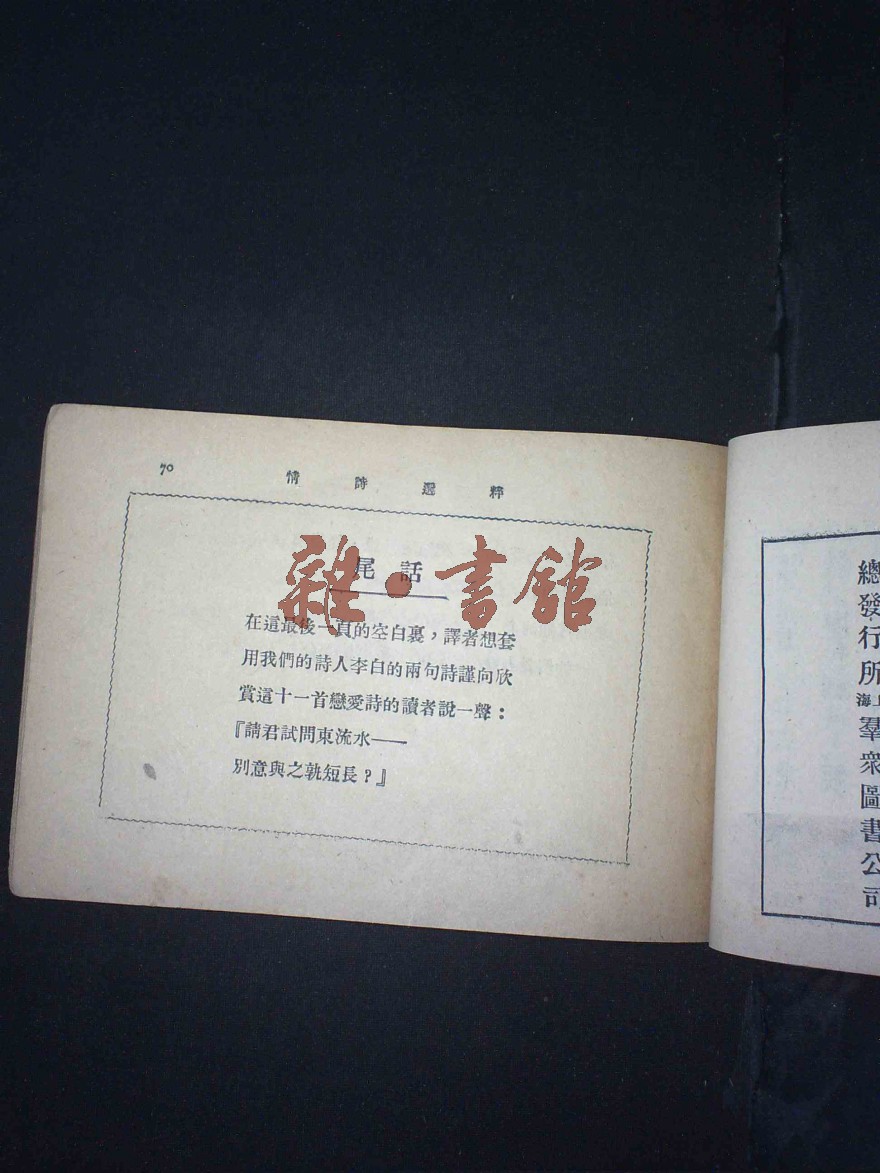 70
情詩選粹
尾話
雜·書館
在這最後一頁的空白裏，譯者想套
用我們的詩人李白的兩句詩謹向欣
賞這十一首戀愛詩的讀者說一聲：
『請君試問東流水——
別意與之孰短長？』
總發行所
上海
羣衆圖書公司